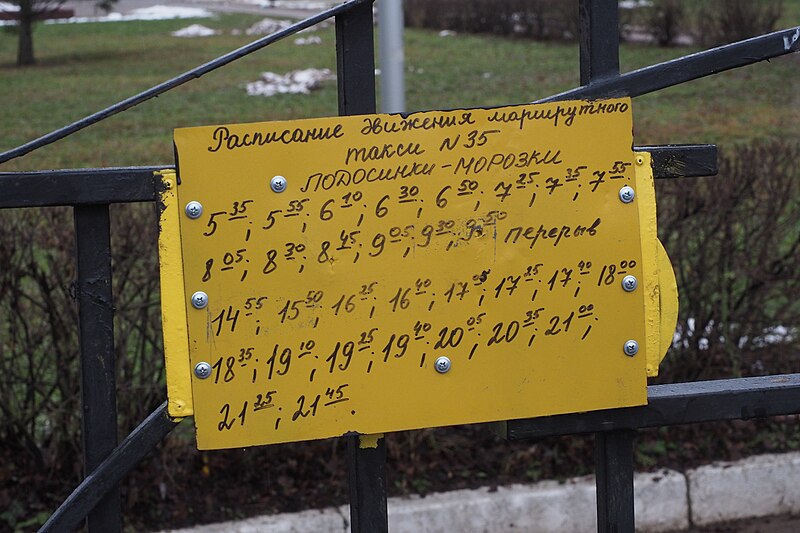 Расписание движения маршрутного
такси N35
ЛОДОСИНКИ-МОРОЗКИ
5 35; 5 55; 6 10; 6 30; 6 50; 7 25; 7 35; 7 55.
8 05; 8 30; 8 45; 9 05; 9 30; 9 50 перерыв
14 55; 15 50; 16 25; 16 40; 17 05; 17 25; 17 40; 18 00
18 35; 19 10; 19 25; 19 40; 20 05; 20 35; 21 00;
21 25; 21 45.